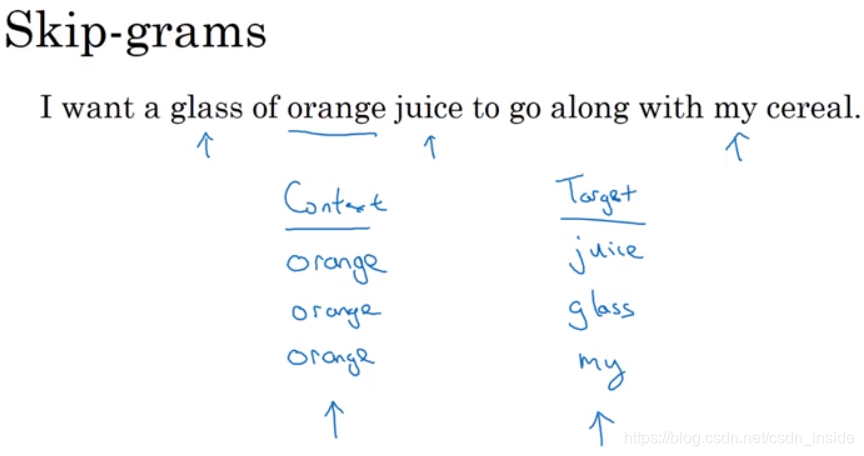 Skip-grams
I want a glass of orange juice to go along with my cereal.
Context Target
orange juice
orange glass
orange my
https://blog.csdn.net/csdn_inside